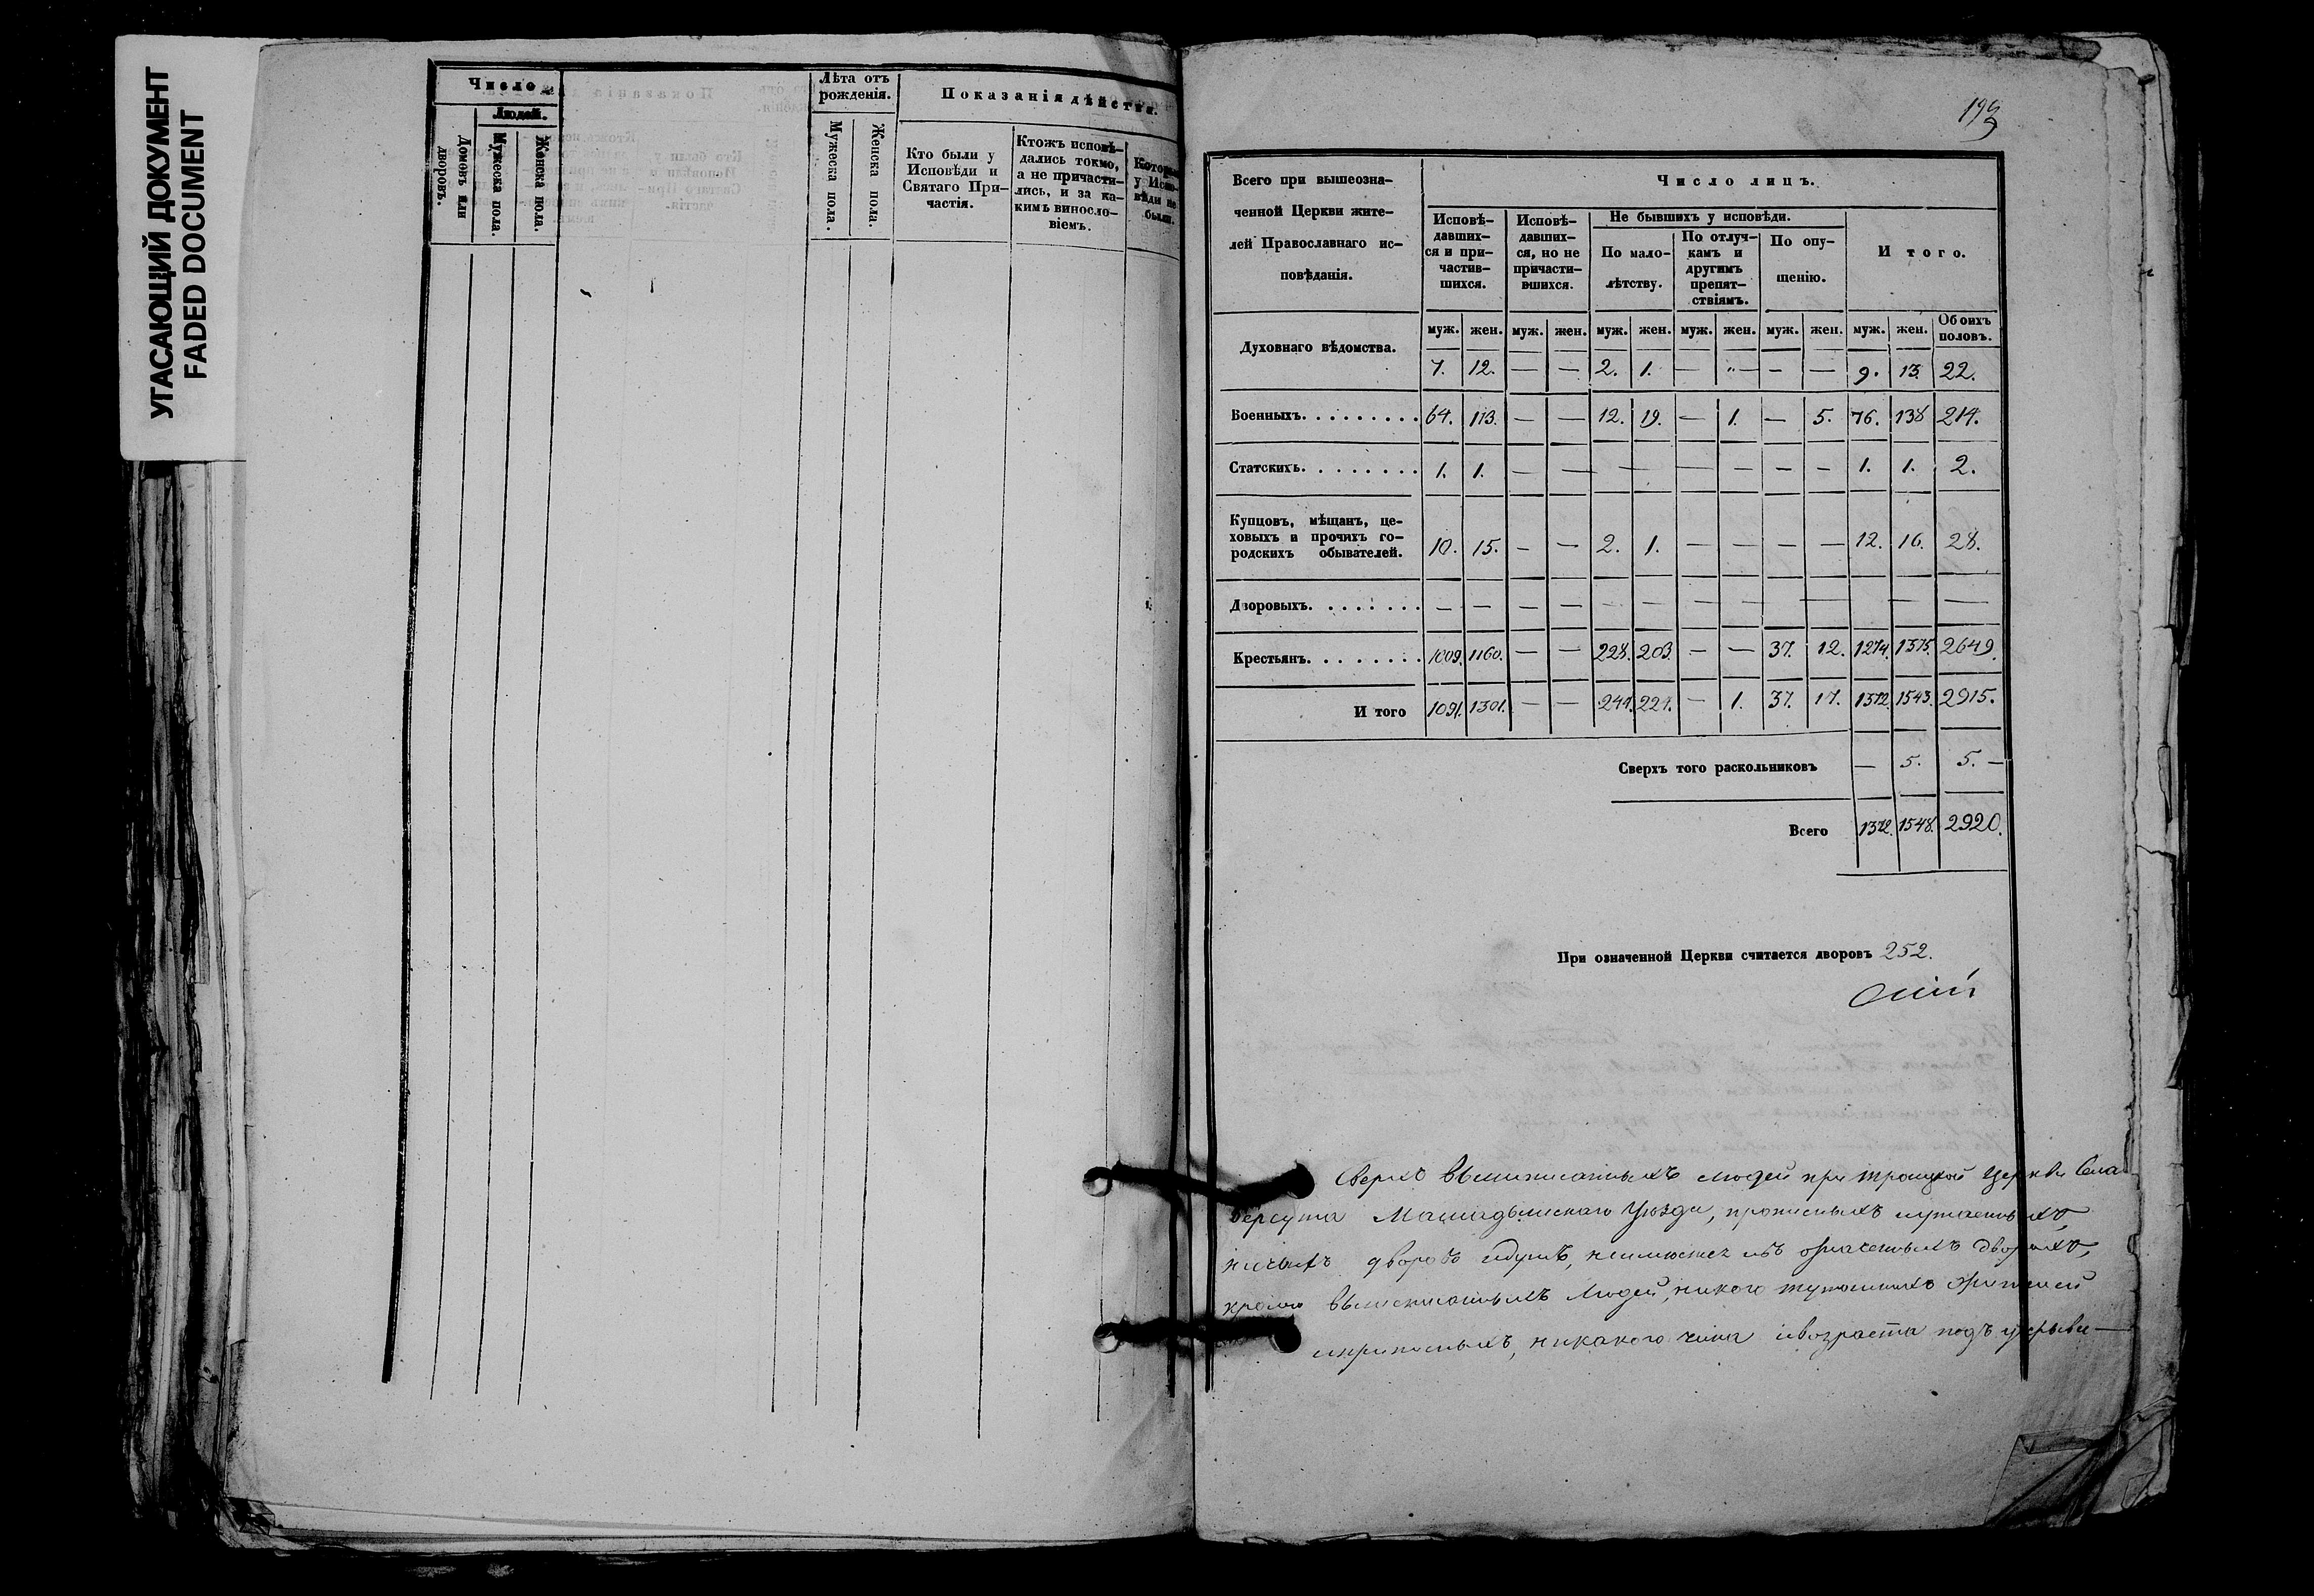 УГАСАЮЩИЙ ДОКУМЕНТ
FADED DOCUMENT
Число
Людей.
Домовъ или дворовъ.
Мужеска пола.
Женска пола.
Лѣта отъ
рожденія.
Мужеска пола.
Женска пола.
Показанія дѣйства.
Кто были у
Исповѣди и
Святаго При-
частія.
Ктожъ исповѣ-
дались токмо,
а не причасти-
лись, и за ка-
кимъ виносло-
віемъ.
Которые
у Испо-
вѣди не
были.
193
Всего при вышеозна-
ченной Церкви жите-
лей Православнаго ис-
повѣданія.
Число лицъ.
Исповѣ-
давших-
ся и при-
частив-
шихся.
Исповѣ-
давших-
ся, но не
причасти-
вшихся.
Не бывшихъ у исповѣди.
По мало-
лѣтству.
По отлуч-
камъ и
другимъ
препят-
ствіямъ.
По опу-
щенію.
Итого.
муж. жен. муж. жен. муж. жен. муж. жен. муж. жен. муж. жен. Обоихъ половъ.
Духовнаго вѣдомства. 7. 12. — — 2. 1. — „— — — 9. 13. 22.
Военныхъ. . . . . . . . . 64. 113. — — 12. 19. — 1. — 5. 76. 138 214.
Статскихъ. . . . . . . . 1. 1. — — — — — — 1. 1. 2.
Купцовъ, мѣщанъ, це-
ховыхъ и прочихъ го-
родскихъ обывателей. 10. 15. — — 2. 1. — — — — 12. 16. 28.
Дворовыхъ. . . . . . . . — — — — — — — — — — —
Крестьянъ. . . . . . . . 1009. 1160. — — 228. 203. — — 37. 12. 1274. 1375. 2649.
И того 1091. 1301. — — 244. 224. — 1. 37. 17. 1372. 1543. 2915.
Сверхъ того раскольниковъ — 5. 5. —
Всего 1372. 1548. 2920.
При означенной Церкви считается дворовъ 252.
Сверхъ вышеписанныхъ людей при троицкой церкви Села
Берсута Мамадышскаго Уѣзда, прописныхъ
дворовъ означенныхъ дворахъ,
кромѣ вышеписанныхъ людей, никого жителей
никакого чина ивозраста подъ укрыви—